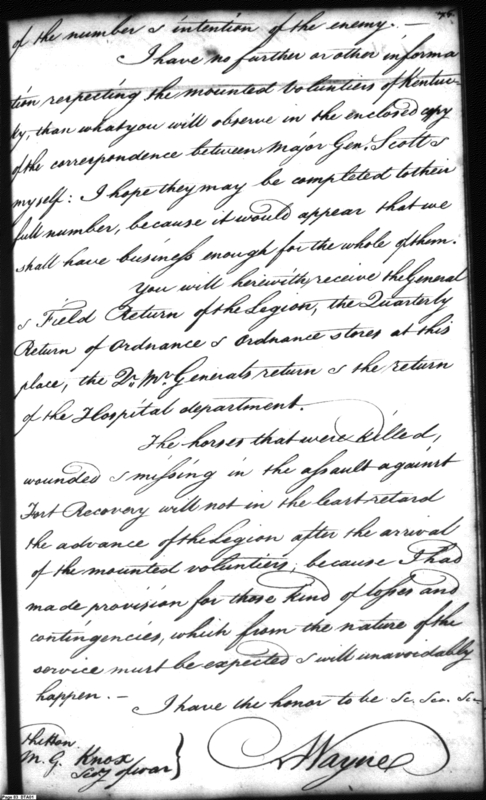 of the number & intention of the enemy. —
I have no further or other informa
tion respecting the mounted Voluntiers of Kentuc-
ky, than what you will observe in the enclosed copy
of the correspondence between Major Gen. Scott &
myself: I hope they may be completed to their
full number, because it would appear that we
shall have business enough for the whole of them.
You will herewith receive the General
& Field Return of the Legion, the Quarterly
Return of Ordnance & Ordnance stores at this
place, the Qr. Mr. Generals return & the return
of the Hospital department.
The horses that were killed,
wounded & missing in the assault against
Fort Recovery will not in the least retard
the advance of the Legion after the arrival
of the mounted voluntiers; because I had
made provision for those kind of losses and
contingencies, which from the nature of the
service must be expected & will unavoidably
happen. —
I have the honor to be &c. &ca. &c
The Hon.
M. G. Knox
Secy of war }
A Wayne